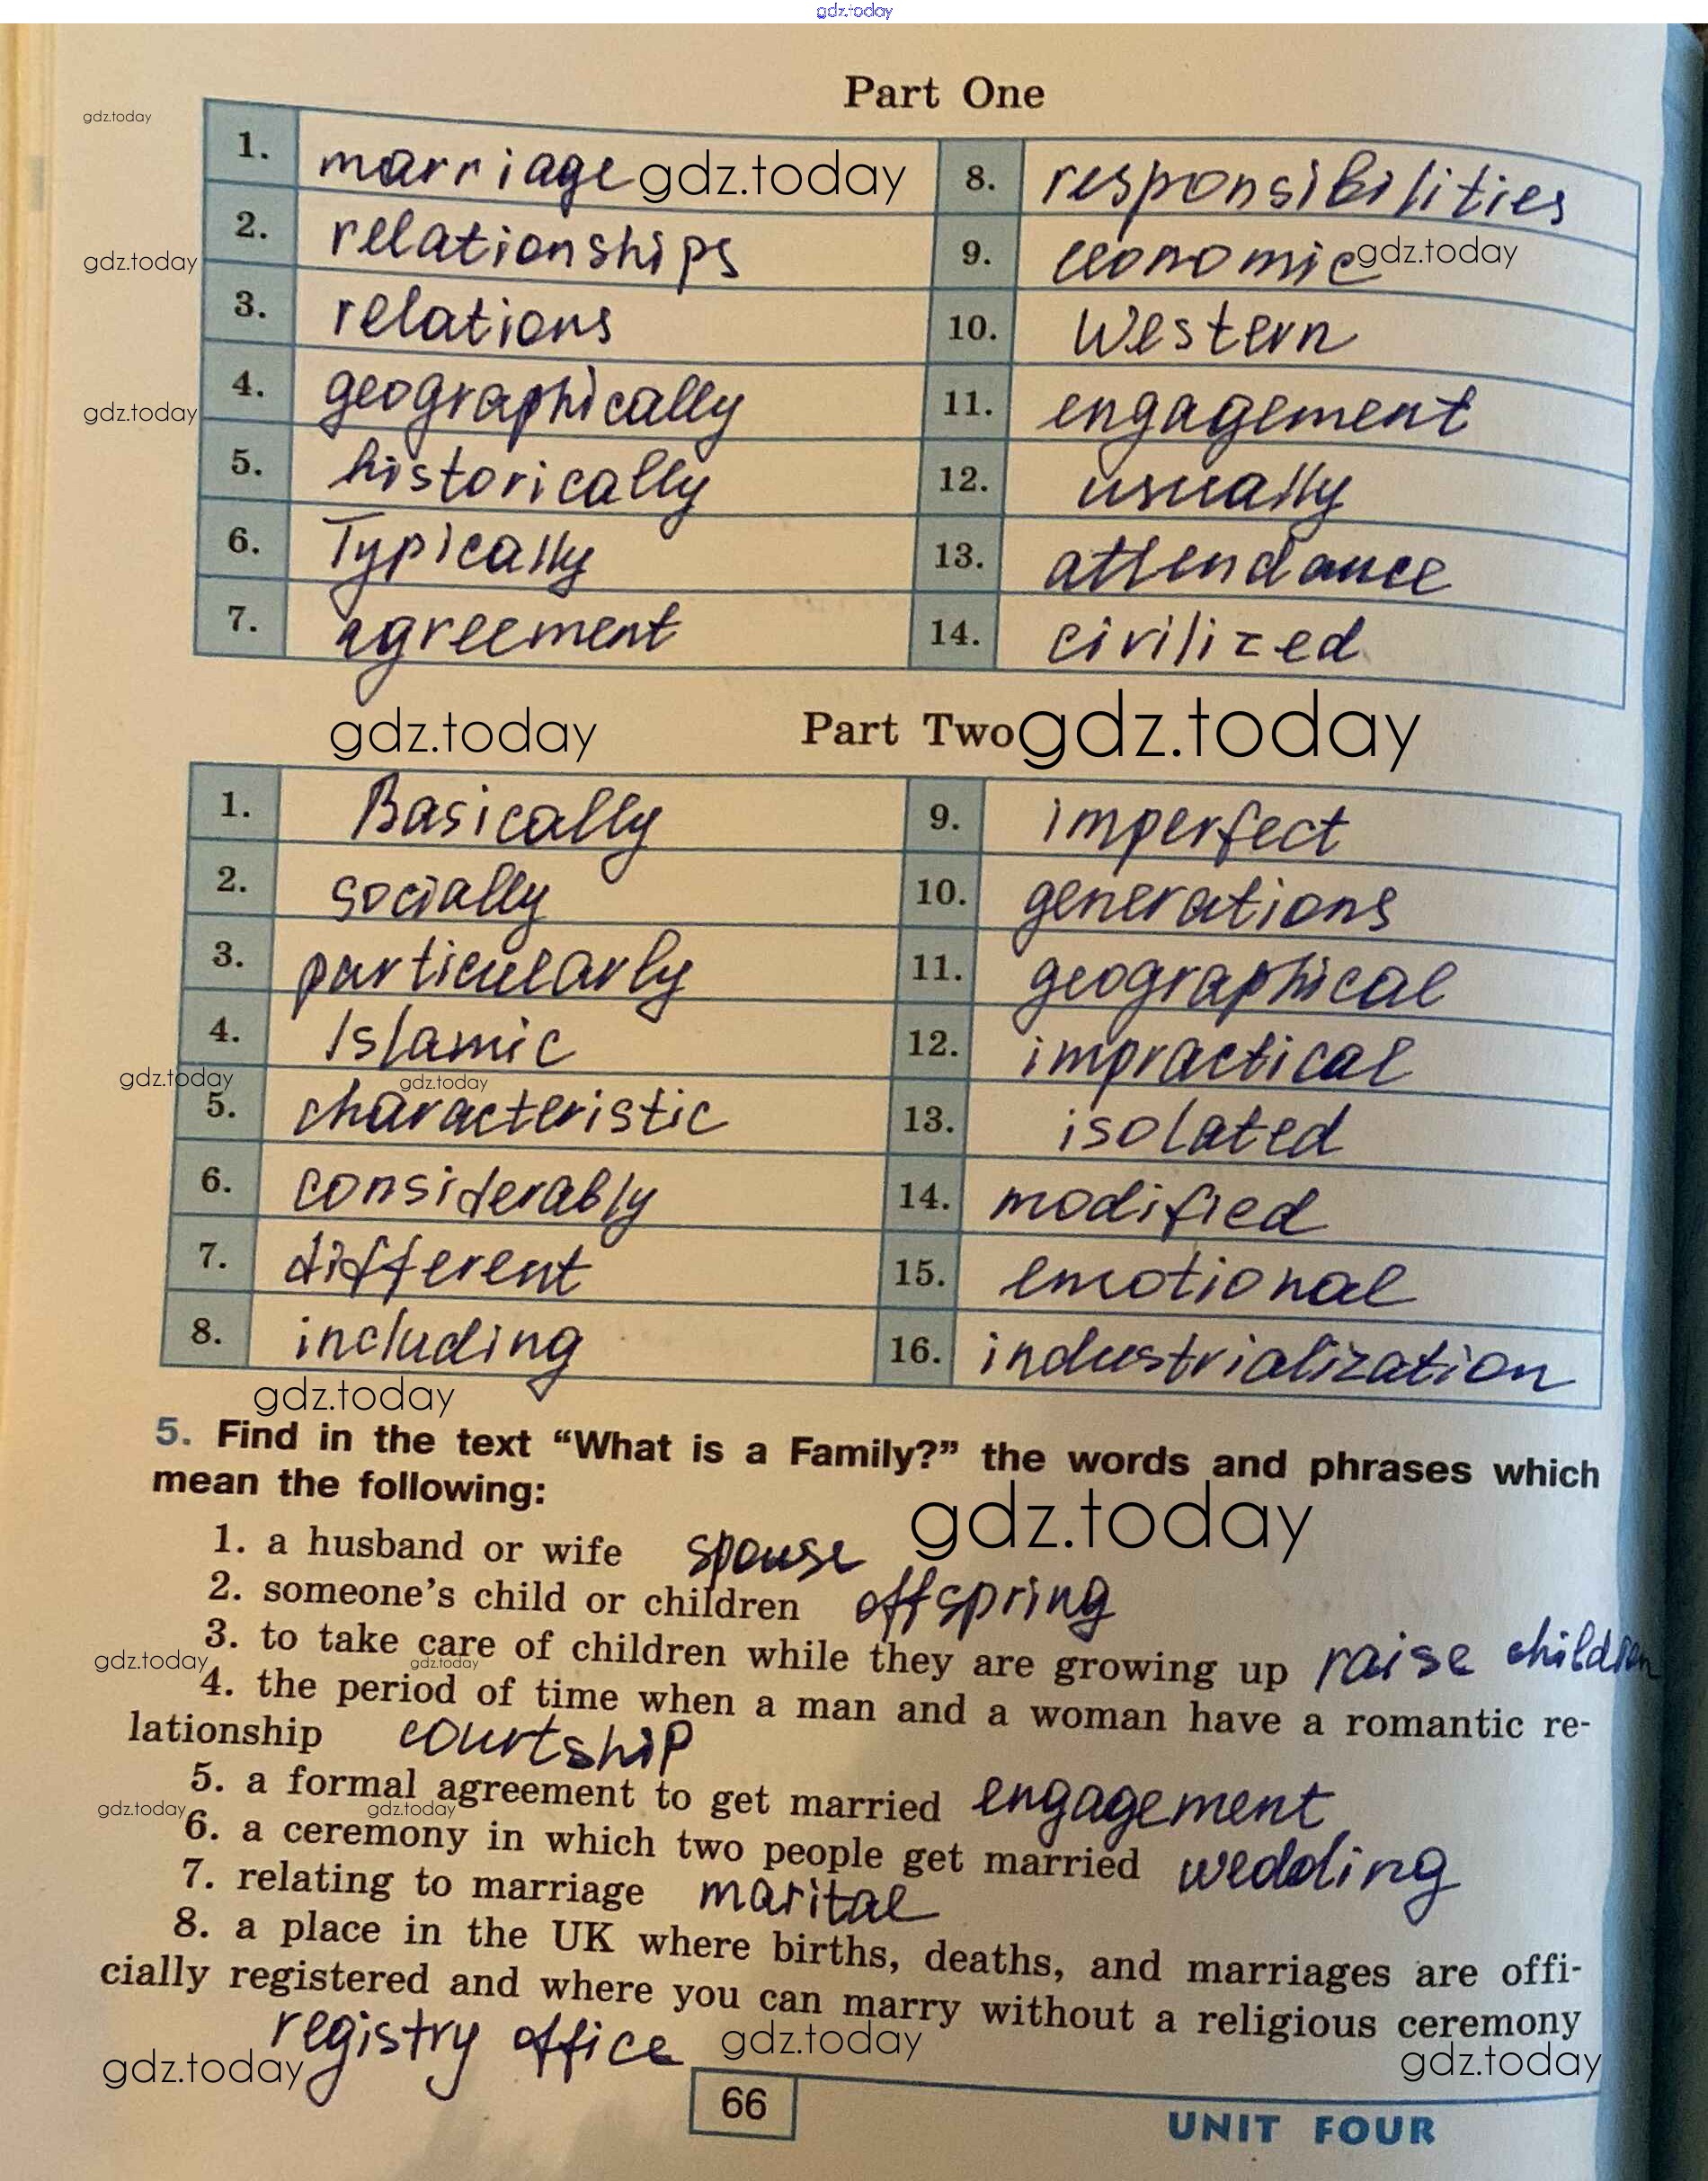 gdz.today
Part One
gdz.today
1. marriage gdz.today 8. responsibilities
2. relationships 9. economic gdz.today
gdz.today
3. relations 10. Western
4. geographically 11. engagement
gdz.today
5. historically 12. usually
6. Typically 13. attendance
7. agreement 14. civilized
gdz.today Part Two gdz.today
1. Basically 9. imperfect
2. socially 10. generations
3. particularly 11. geographical
4. Islamic 12. impractical
gdz.today gdz.today
5. characteristic 13. isolated
6. considerably 14. modified
7. different 15. emotional
8. including 16. industrialization
gdz.today
5. Find in the text “What is a Family?” the words and phrases which
mean the following:
gdz.today
1. a husband or wife spouse
2. someone’s child or children offspring
3. to take care of children while they are growing up raise children
gdz.today gdz.today
4. the period of time when a man and a woman have a romantic re-
lationship courtship
5. a formal agreement to get married engagement
gdz.today gdz.today
6. a ceremony in which two people get married wedding
7. relating to marriage marital
8. a place in the UK where births, deaths, and marriages are offi-
cially registered and where you can marry without a religious ceremony
registry office gdz.today
gdz.today gdz.today
66
UNIT FOUR